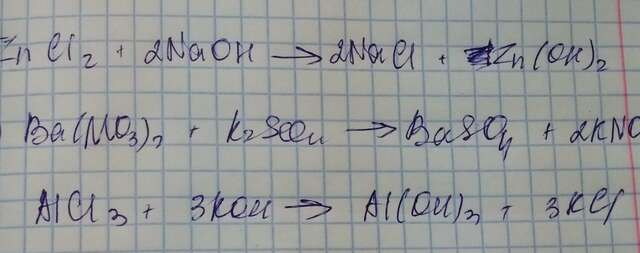 ZnCl₂ + 2NaOH → 2NaCl + Zn(OH)₂
Ba(NO₃)₂ + K₂SO₄ → BaSO₄ + 2KNO
AlCl₃ + 3KOH → Al(OH)₃ + 3KCl